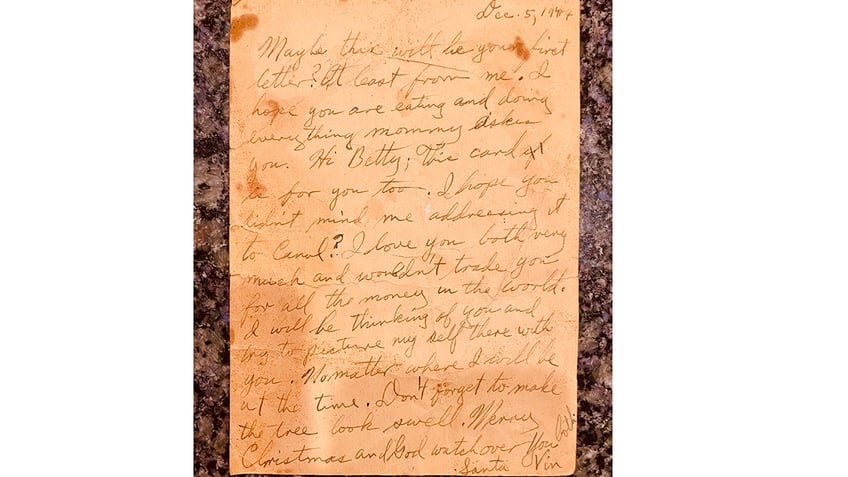 Dec. 5, 1944
Maybe this will be your first
letter? At least from me. I
hope you are eating and doing
everything mommy askes
you. Hi Betty; this card
is for you too. I hope you
didn't mind me addressing it
to Carol? I love you both very
much and wouldn't trade you
for all the money in the world.
I will be thinking of you and
try to picture my self there with
you. No matter where I will be
at the time. Don't forget to make
the tree look swell. Merry
Christmas and God watch over you both
Santa Vin